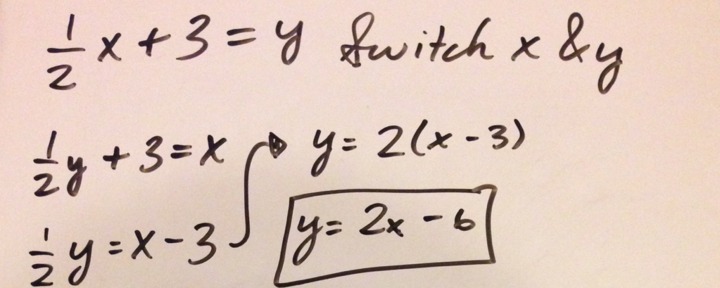 1/2 x + 3 = y Switch x & y
1/2 y + 3 = x
1/2 y = x - 3
y = 2(x - 3)
y = 2x - 6